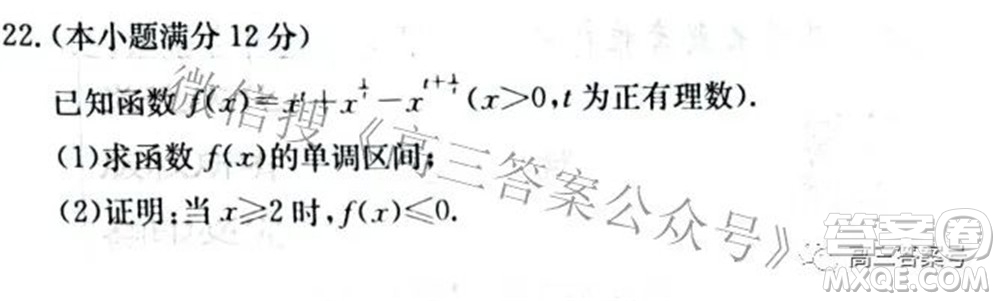 22.(本小题满分 12 分)
已知函数 f(x)=x^t+x^{1/t}-x^{t+1/t}(x>0,t 为正有理数).
(1)求函数 f(x)的单调区间;
(2)证明:当 x≥2 时,f(x)≤0.
微信搜《高三答案公众号》
高三答案号
答案圈
MXQE.COM